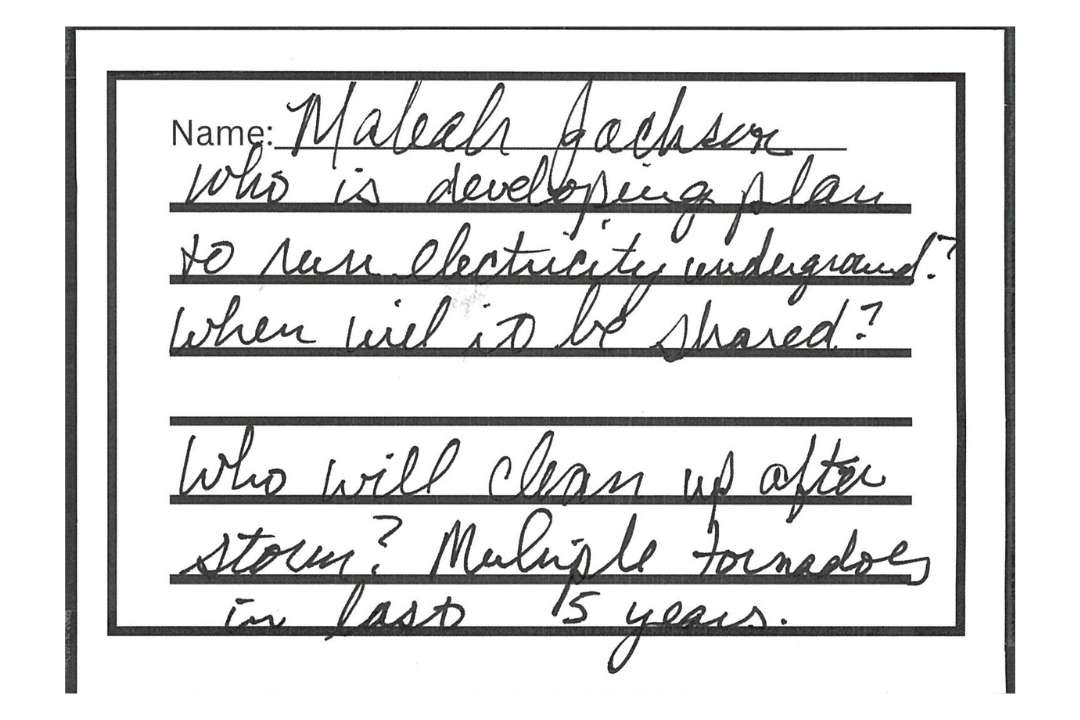 Name: Maleah Jackson
Who is developing plan
to run electricity underground?
When will it be shared?
Who will clean up after
storm? Multiple tornadoes
in last 15 years.